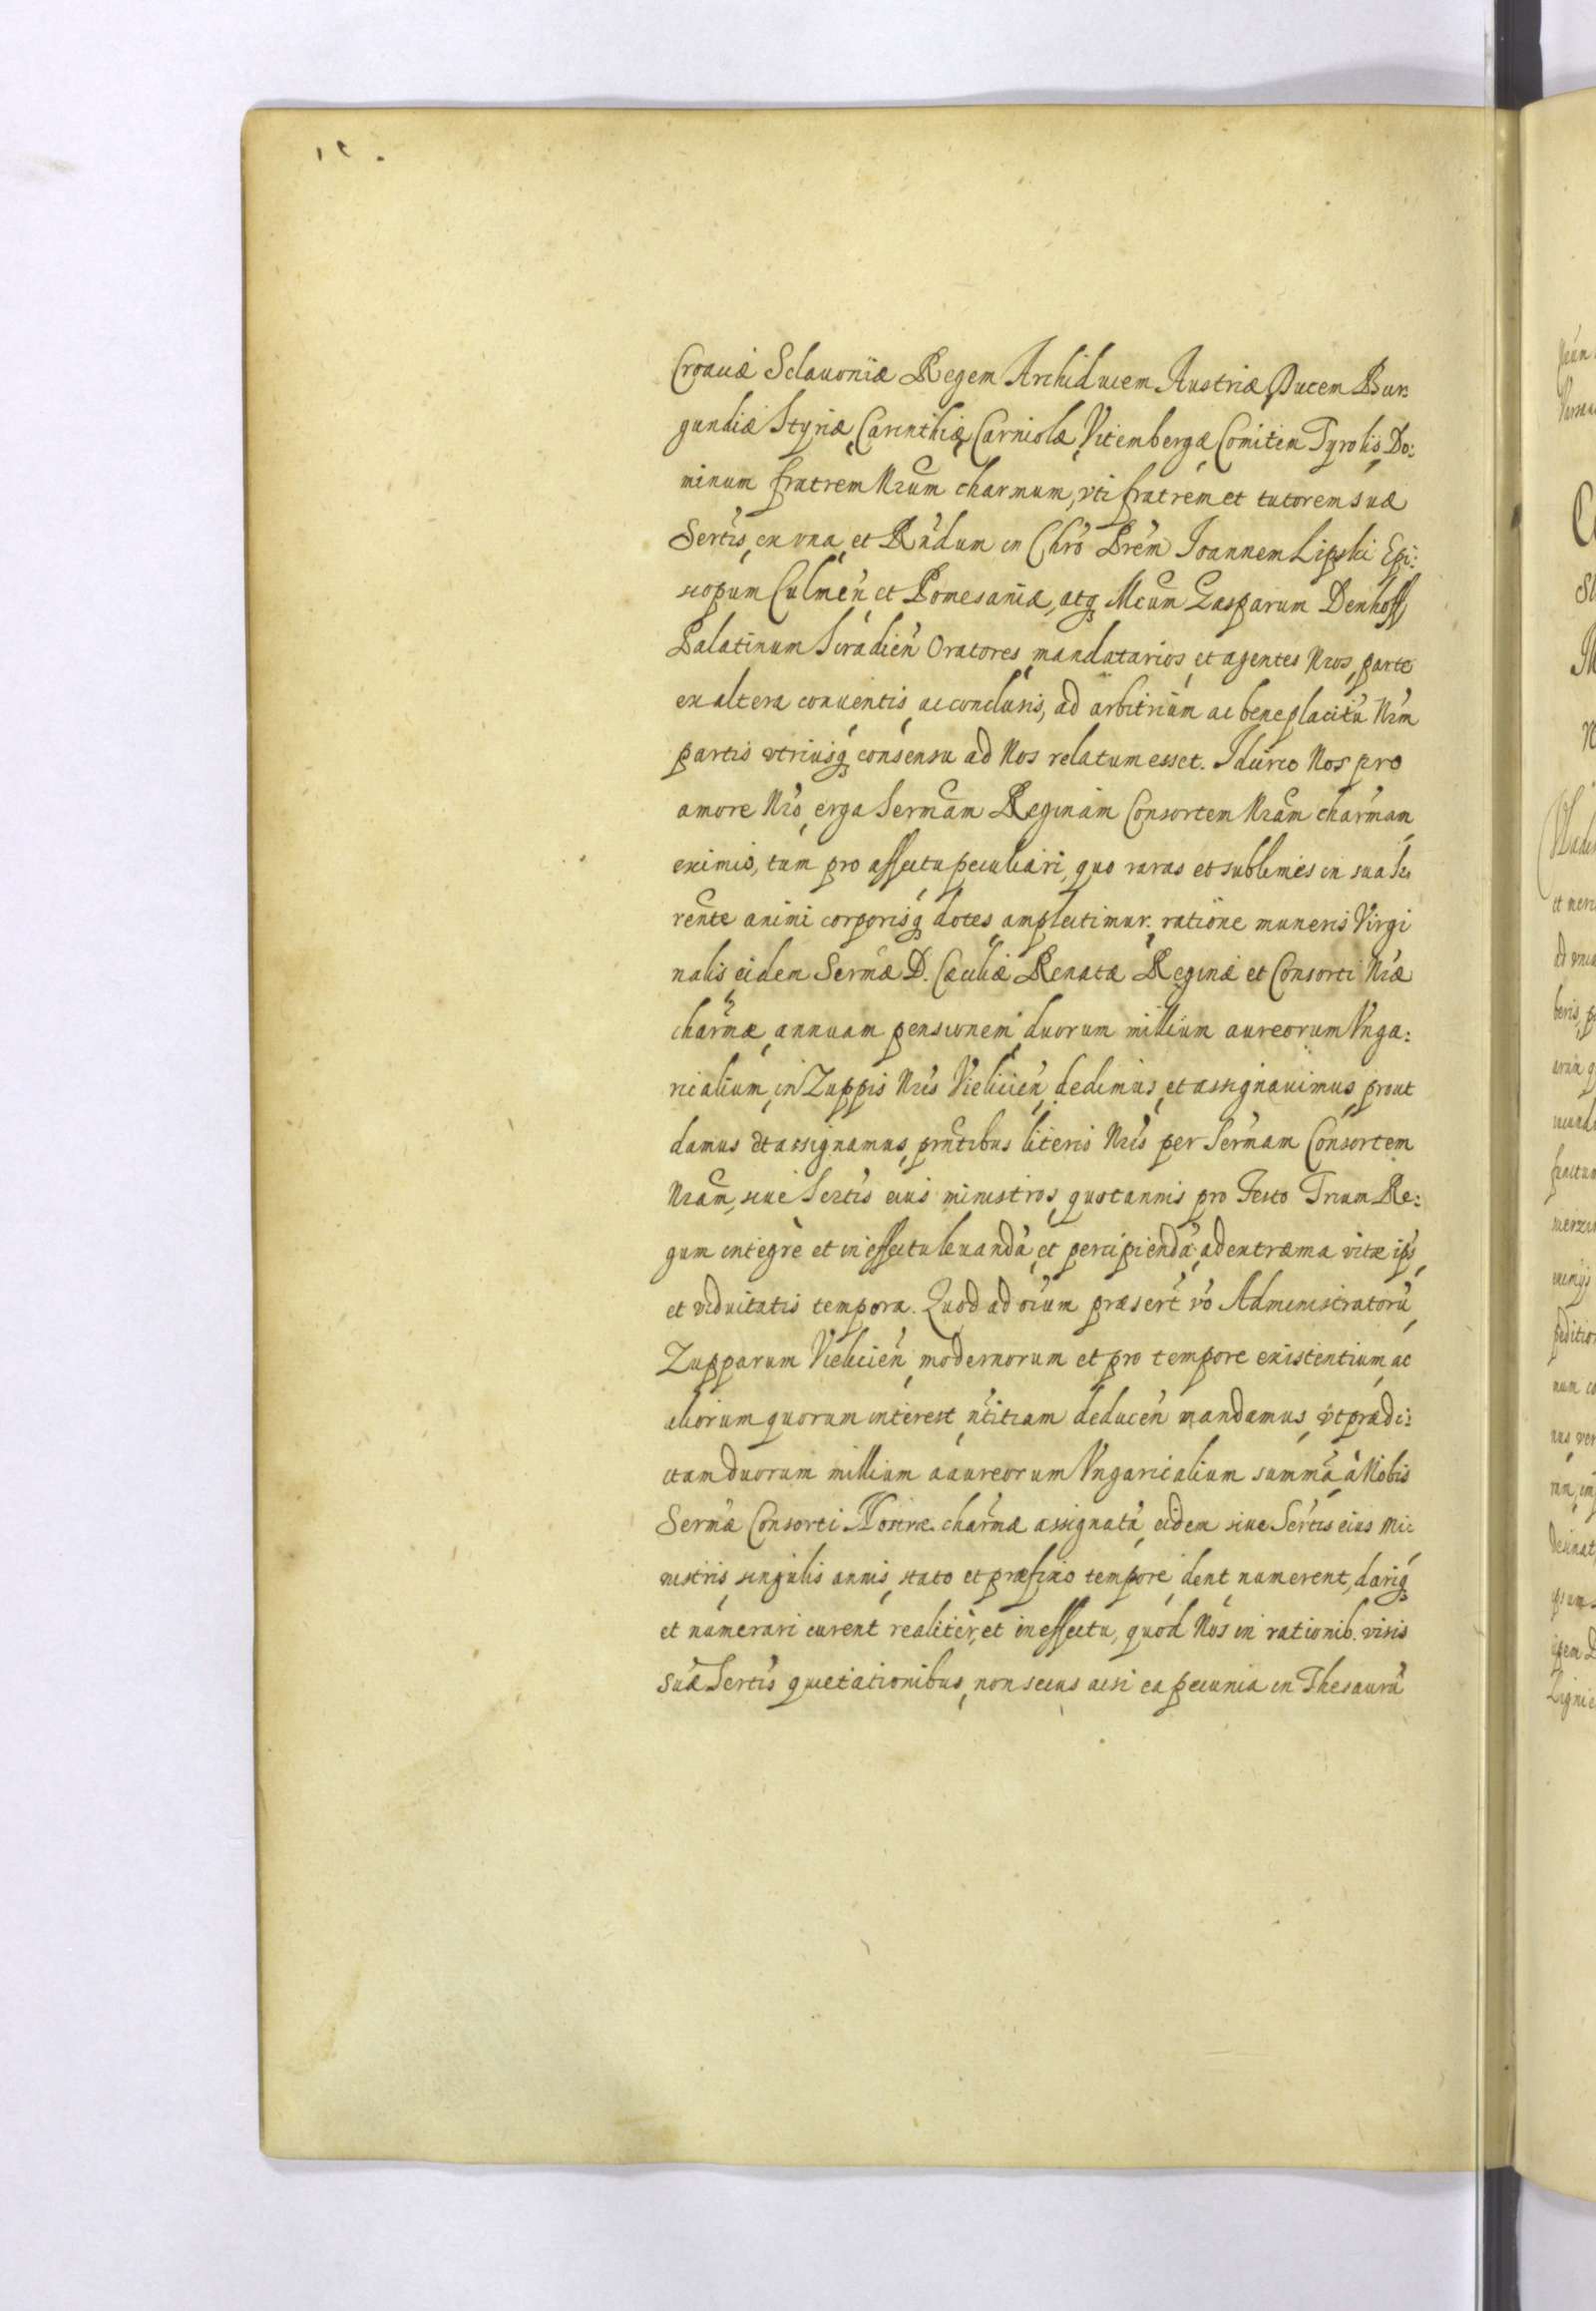 Croaciæ Sclavoniæ Regem Archiducem Austriæ, Ducem Bur:
gundiæ Styriæ, Carinthiæ, Carniolæ, Vitembergæ Comitem Tyrolis, Do:
minum fratrem Nrum charmum, vti fratrem et tutorem suæ
Sertis, ex vna, et Rndum in Chro Prem Joannem Lipski Epi:
scopum Culmen et Pomesaniæ, atq Mcum Gasparum Denhoff,
Palatinum Siradien Oratores, mandatarios, et agentes Nros, parte
ex altera conuentis, ac conclusis, ad arbitrium ac beneplacitu Nrm
partis vtriusq consensu ad Nos relatum esset. Idcirco Nos pro
amore Nro, erga Sermam Reginam Consortem Nram charmam,
eximio, tum pro affectu peculiari, quo raras et sublimes in sua Se
rente animi corporisq dotes, amplectimur, ratione muneris Virgi
nalis, eidem Sermæ D. Cæciliæ Renatæ Reginæ et Consorti Nræ
charmæ, annuam pensionem, duorum millium aureorum Vnga:
ricalium, in Zuppis Nris Vielicien, dedimus, et assignauimus, prout
damus et assignamus, prntibus literis Nris per Sermam Consortem
Nram, siue Sertis eius ministros, quotannis pro Festo Trium Re:
gum integrè et in effectu leuanda, et percipienda, ad extræma vitæ ips,
et viduitatis tempora. Quod ad oium præsert vo Administratoru,
Zupparum Vielicien, modernorum et pro tempore existentium, ac
aliorum quorum interest, ntitiam deducen mandamus, vt prædi:
ctam duorum millium aaureorum Vngaricalium summa, à Nobis
Sermæ Consorti Nostræ charmæ assignata, eidem siue Sertis eius Mi:
nistris, singulis annis, stato et præfixo tempore, dent, numerent, dariq
et numerari curent realiter, et in effectu, quod Nos in rationib. visis
Suæ Sertis quietationibus, non secus acsi ea pecunia in Thesauru